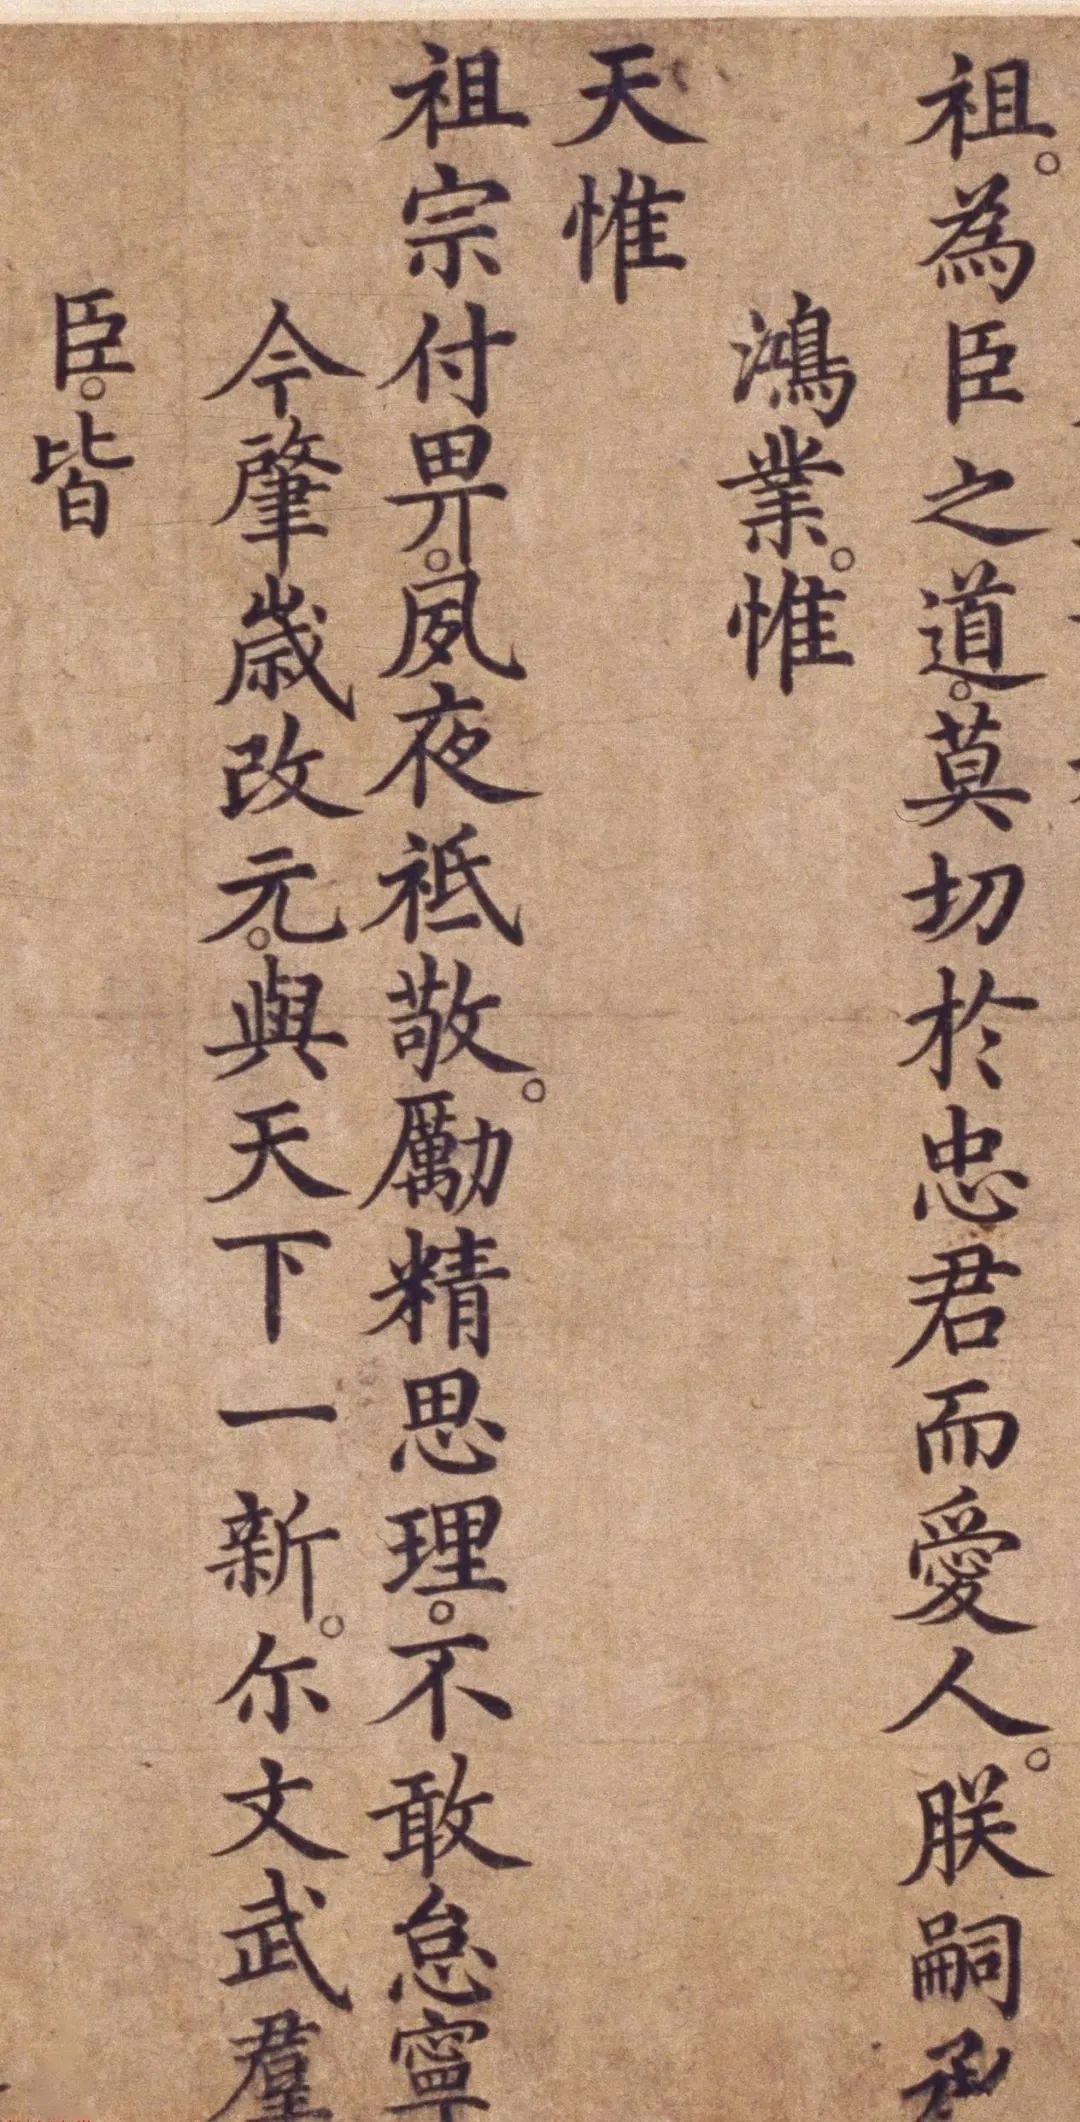 祖。為臣之道。莫切於忠君而愛人。朕嗣承
鴻業。惟
天惟
祖宗付畀。夙夜祗敬。勵精思理。不敢怠寧
今肇歲改元。與天下一新。尔文武羣
臣。皆